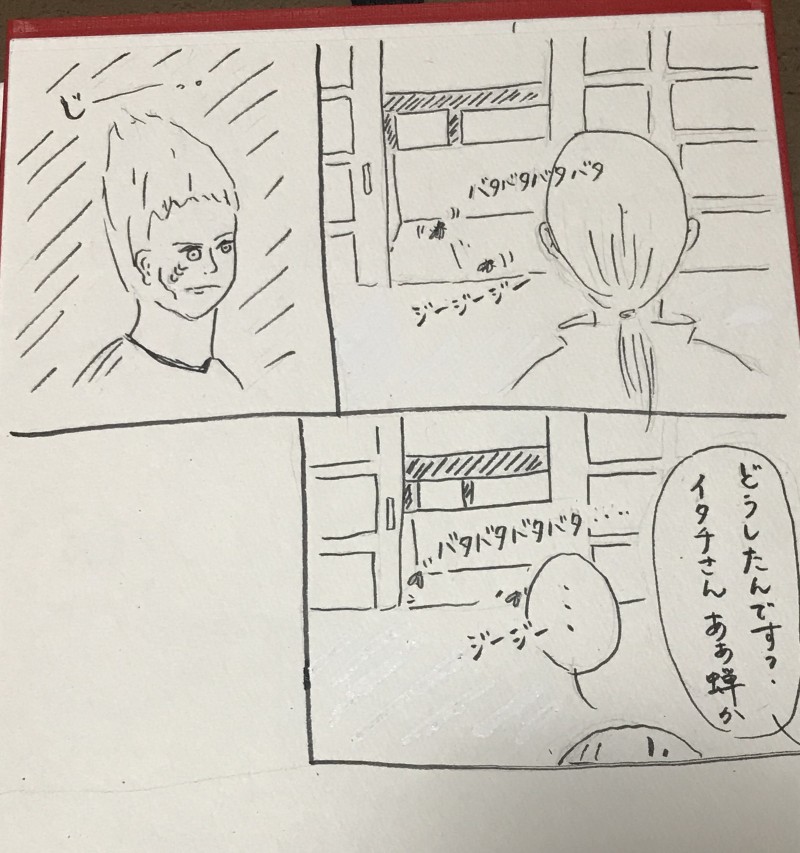 バタバタバタバタ
ジージージー
じー‥
どうしたんです?
イタチさん ああ蝉か
バタバタバタバタ‥‥
ジージー
…